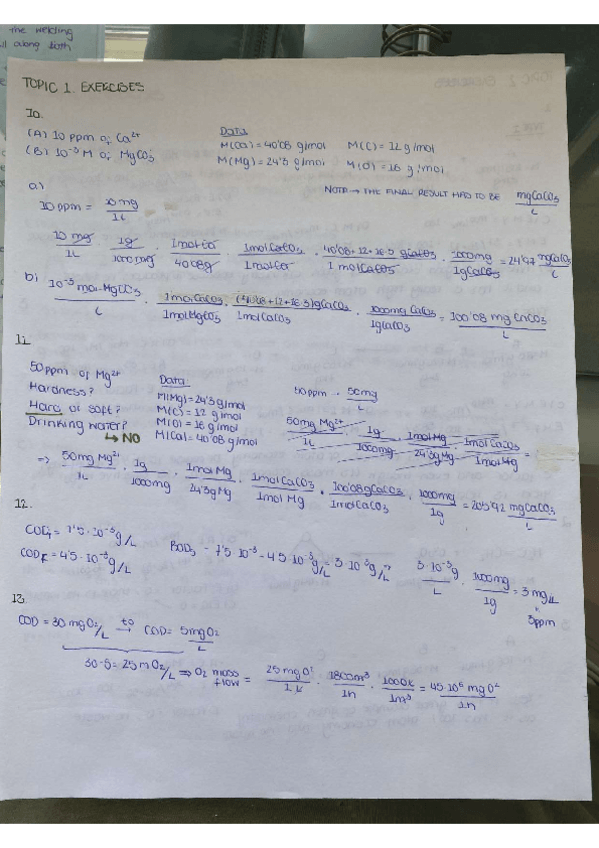 the welding
along both
TOPIC 1. EXERCISES
10.
(A) 10 ppm of Ca²⁺
(B) 10⁻³ M of MgCO₃
Data
M(Ca) = 40'08 g/mol M(C) = 12 g/mol
M(Mg) = 24'3 g/mol M(O) = 16 g/mol
NOTE → THE FINAL RESULT HAD TO BE mgCaCO₃/L
a)
10 ppm = 10 mg/1L
10 mg/1L · 1g/1000mg · 1molCa/40'08g · 1molCaCO₃/1molCa · 40'08+12+16·3 gCaCO₃/1molCaCO₃ · 1000mg/1gCaCO₃ = 24'97 mgCaCO₃/L
b) 10⁻³ mol MgCO₃/L · 1molCaCO₃/1molMgCO₃ · (40'08+12+16·3)gCaCO₃/1molCaCO₃ · 1000mg CaCO₃/1gCaCO₃ = 100'08 mg CaCO₃/L
11.
50ppm of Mg²⁺
Hardness?
Hard or soft?
Drinking water?
↳ NO
Data:
M(Mg) = 24'3 g/mol
M(C) = 12 g/mol
M(O) = 16 g/mol
M(Ca) = 40'08 g/mol
50ppm → 50mg/L
50mg Mg²⁺/1L · 1g/1000mg · 1molMg/24'3gMg · 1molCaCO₃/1molMg =
⇒ 50mg Mg²⁺/1L · 1g/1000mg · 1molMg/24'3gMg · 1molCaCO₃/1molMg · 100'08gCaCO₃/1molCaCO₃ · 1000mg/1g = 205'92 mgCaCO₃/L
12.
COD = 7'5·10⁻³g/L
COD = 4'5·10⁻³g/L
BOD₅ = 7'5·10⁻³ - 4'5·10⁻³g/L = 3·10⁻³g/L
3·10⁻³g/L · 1000mg/1g = 3 mg/L
3ppm
13.
COD = 30 mgO₂/L to → COD = 5mgO₂/L
30-5 = 25 mO₂/L ⇒ O₂ mass flow = 25mgO²/1L · 1800m³/1h · 1000L/1m³ = 45·10⁶ mgO²/1h